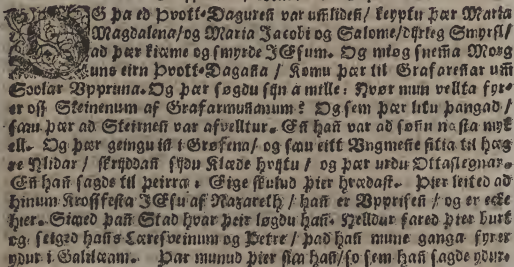 OG þa ed Þvott-Dagureñ var umlideñ / keyptu þær Maria
Magdalena/og Maria Jacobi og Salome/dyrleg Smyrsl/
ad þær kiæme og smyrde JEsum. Og miog snemma Morg
uns eirn Þvott-Dagaña / komu þær til Grafareñar um
Soolar Uppruna. Og þær søgdu sijn a mille: Hvør mun vellta fyr-
er oss Steinenum af Grafarmuñanum? Og sem þær litu þangad /
sæu þær ad Steirneñ var afvelltur. Eñ hañ var ad soñu næsta myk
ell. Og þær geingu iñ i Grøfena/ og sæu eitt Ungmeñe sitia til hæg
re Hlidar / skrijddañ sijdu Klæde hvijtu / og þær urdu Ottaslegnar.
Eñ hañ sagde til þeirra: Eige skulud þier hrædast. Þier leited ad
hinum Krossfesta JEsu af Nazareth / hañ er Upprisen / og er ecke
hier. Siaed þañ Stad hvar þeir løgdu hañ. Helldur fared þier burt
og seiged hañs Læresveinum og Petre / þad hañ mune ganga fyrer
ydur i Galilæam. Þar munud þier sia hañ/so sem hañ sagde ydur.